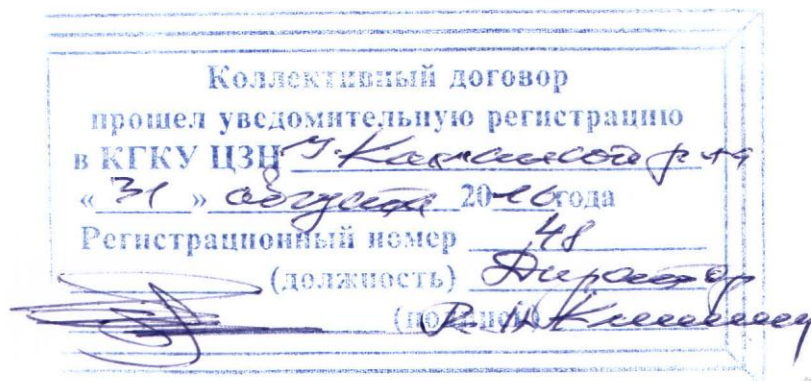 Коллективный договор
прошел уведомительную регистрацию
в КГКУ ЦЗН У-Калманской р-на
«31» августа 2016 года
Регистрационный номер 48
(должность) Директор
(подпись)